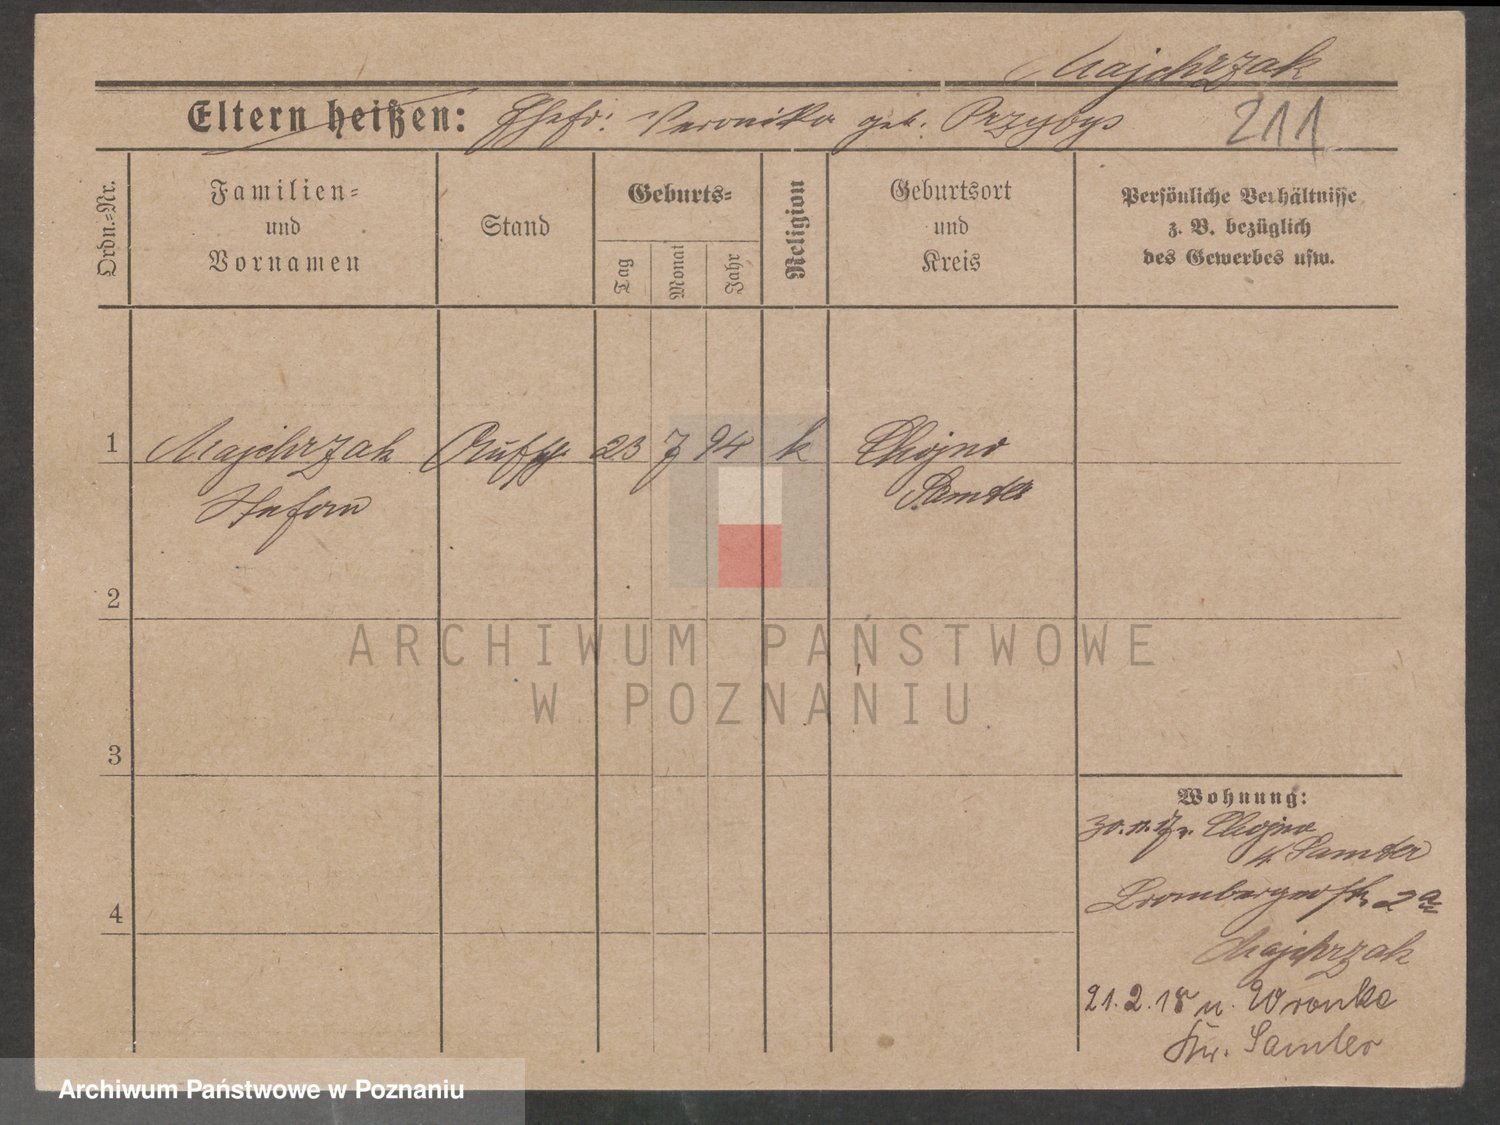 Majchrzak
Eltern heißen: Ehefr: Veronika geb. Przybys
211
Ordn.=Nr.
Familien=
und
Vornamen
Stand
Geburts=
Tag
Monat
Jahr
Religion
Geburtsort
und
Kreis
Persönliche Verhältnisse
z. B. bezüglich
des Gewerbes usw.
1 Majchrzak 23 7 94 k Chojno
Stefan Samter
2
3
4
Wohnung:
30. 11. 17 v. Chojno
Kr. Samter
Brombergerstr. 2a
Majchrzak
21. 2. 18 n. Wronke
Kr. Samter
ARCHIWUM PAŃSTWOWE
W POZNANIU
Archiwum Państwowe w Poznaniu